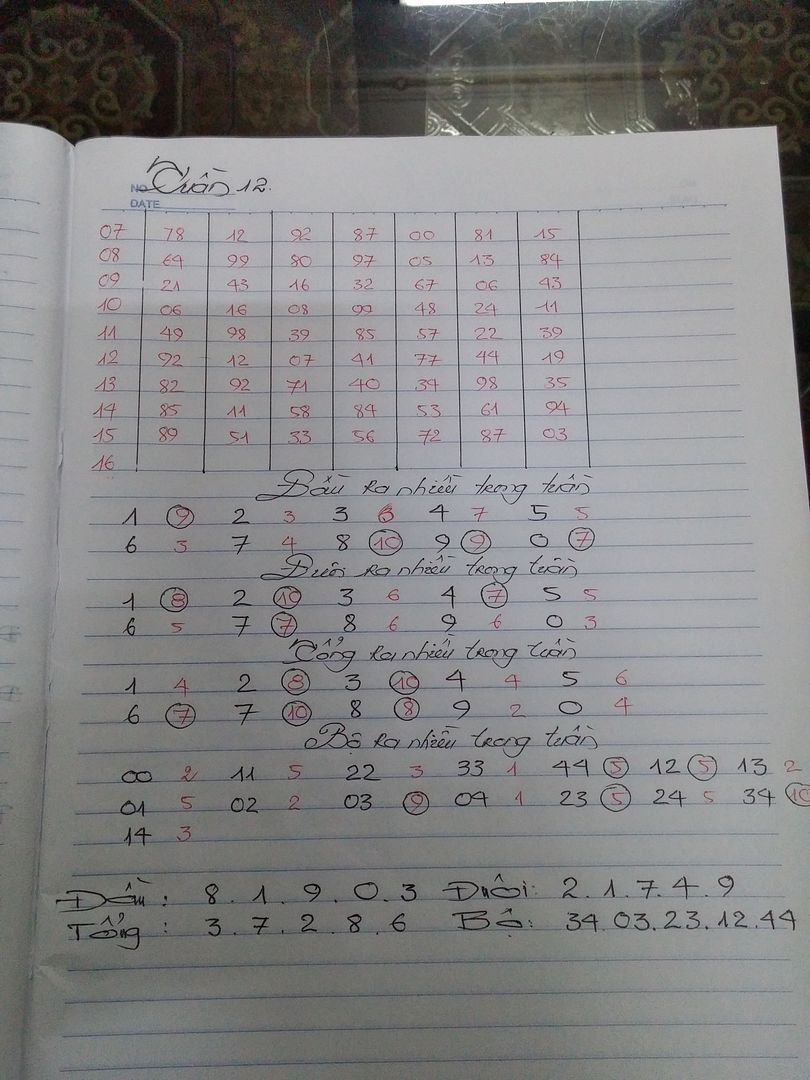 NO
Tuần 12.
DATE
07 78 12 92 87 00 81 15
08 64 99 80 97 05 13 84
09 21 43 16 32 67 06 43
10 06 16 08 99 48 24 11
11 49 98 39 85 57 22 39
12 92 12 07 41 77 44 19
13 82 92 71 40 34 98 35
14 85 11 58 84 53 61 94
15 89 51 33 56 72 87 03
16
Đầu ra nhiều trong tuần
1 9 2 3 3 6 4 7 5 5
6 3 7 4 8 10 9 9 0 7
Đuôi ra nhiều trong tuần
1 8 2 10 3 6 4 7 5 5
6 5 7 7 8 6 9 6 0 3
Tổng ra nhiều trong tuần
1 4 2 8 3 10 4 4 5 6
6 7 7 10 8 8 9 2 0 4
Bộ ra nhiều trong tuần
00 2 11 5 22 3 33 1 44 5 12 5 13 2
01 5 02 2 03 9 04 1 23 5 24 5 34 10
14 3
Đầu : 8 . 1 . 9 . 0 . 3 Đuôi: 2 . 1 . 7 . 4 . 9
Tổng : 3 . 7 . 2 . 8 . 6 Bộ : 34.03.23.12.44